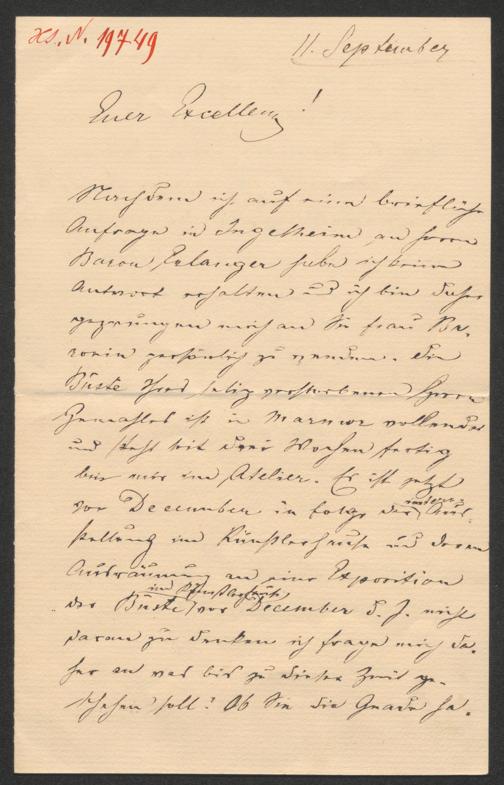 Hs. N. 19749
11. September
Euer Excellenz!
Nachdem ich auf eine briefliche
Anfrage in Ingelheim an Herrn
Baron Erlanger habe ich keine
Antwort erhalten und ich bin daher
gezwungen mich an Sie Frau Ba-
ronin persönlich zu wenden. Die
Büste Ihres selig verstorbenen Herrn
Gemahles ist in Marmor vollendet
und steht seit drei Wochen fertig
bei mir im Atelier. Es ist jetzt
vor December in folge der Aus-
stellung im Künstlerhause und deren
Ausräumung an eine Exposition
im Künstlerhause
der Büste vor December d. J. nicht
daran zu denken ich frage mich da-
her an was bis zu dieser Zeit ge-
schehen soll? Ob Sie die Gnade ha-